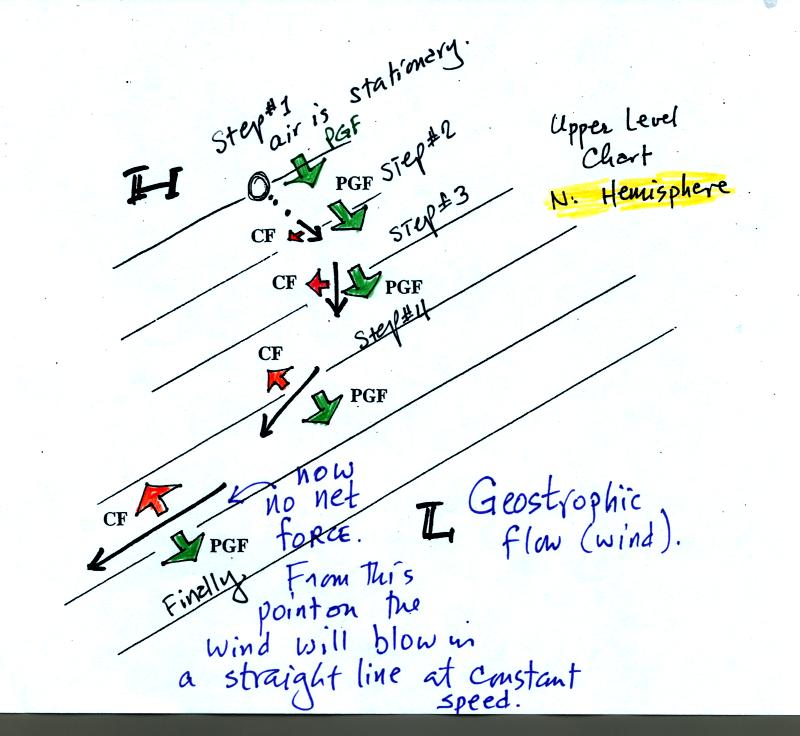 Step#1
air is stationary.
PGF
H
PGF
STEP#2
CF
STEP#3
CF
PGF
Step#4
CF
PGF
CF
PGF
Finally,
Upper Level
Chart
N. Hemisphere
now
no net
FORCE.
L
Geostrophic
flow (wind).
From this
point on the
wind will blow in
a straight line at constant
speed.